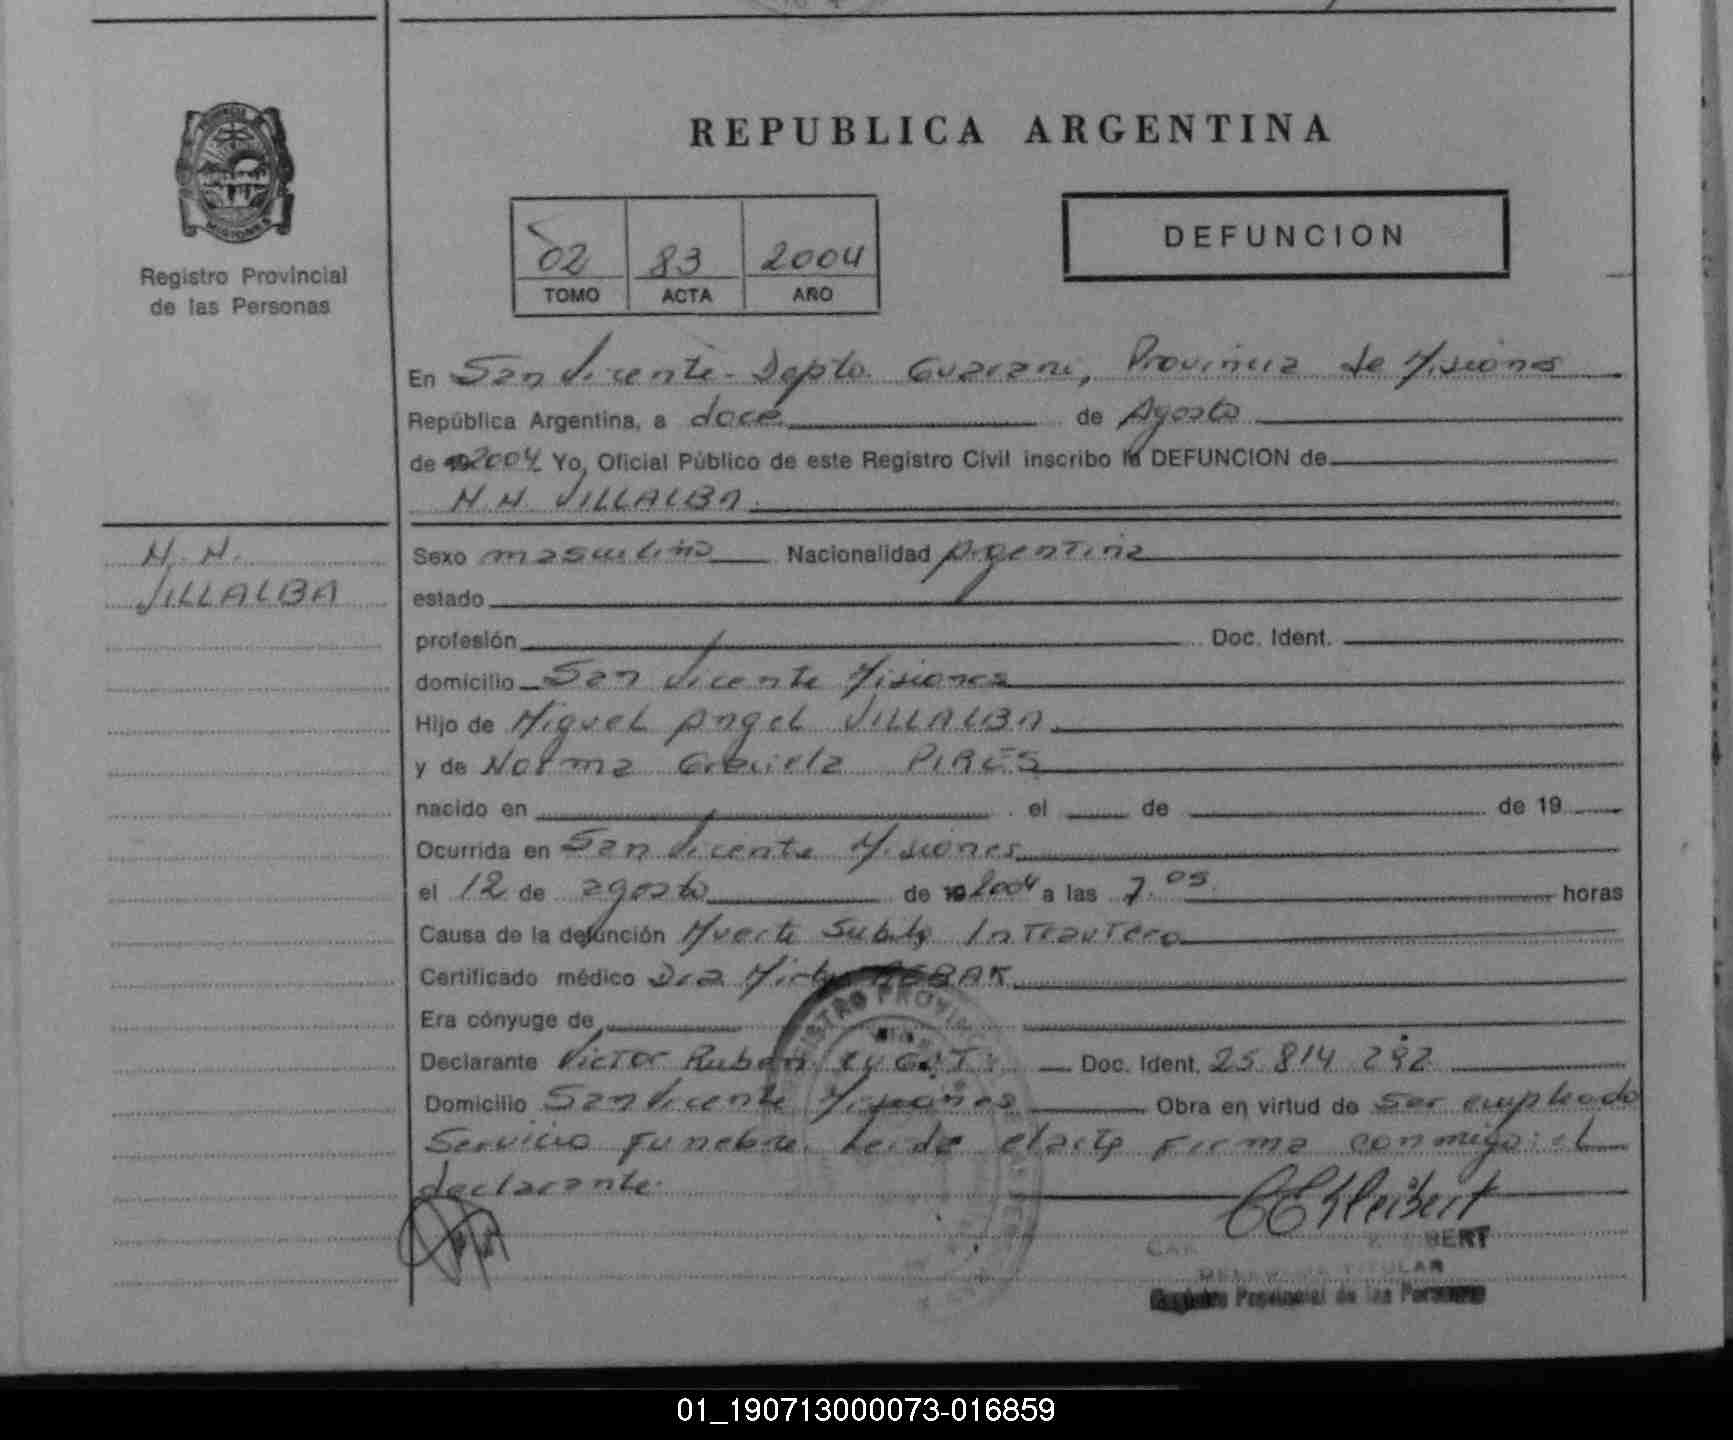 REPUBLICA ARGENTINA
02 83 2004
TOMO ACTA AÑO
DEFUNCION
MISIONES
Registro Provincial
de las Personas
En San Vicente - Depto. Guarani, Provincia de Misiones
República Argentina, a doce de Agosto
de 2004 Yo, Oficial Público de este Registro Civil inscribo la DEFUNCION de
N.N. VILLALBA
N.N.
VILLALBA
Sexo masculino Nacionalidad Argentina
estado
profesión Doc. Ident.
domicilio San Vicente Misiones
Hijo de Miguel Angel VILLALBA
y de Norma Graciela PIRES
nacido en el de de 19
Ocurrida en San Vicente Misiones
el 12 de agosto de 19 2004 a las 7.05 horas
Causa de la defunción Muerte Subita Intrautero
Certificado médico Dra
Era cónyuge de
Declarante Victor Ruben Doc. Ident. 25.814.292
Domicilio San Vicente Misiones Obra en virtud de ser empleado
Servicio Funebre. Leida el acta firma conmigo: el
declarante.
REGISTRO PROVINCIAL
CEKleibert
BERT
TITULAR
Registro Provincial de las Personas
01_190713000073-016859